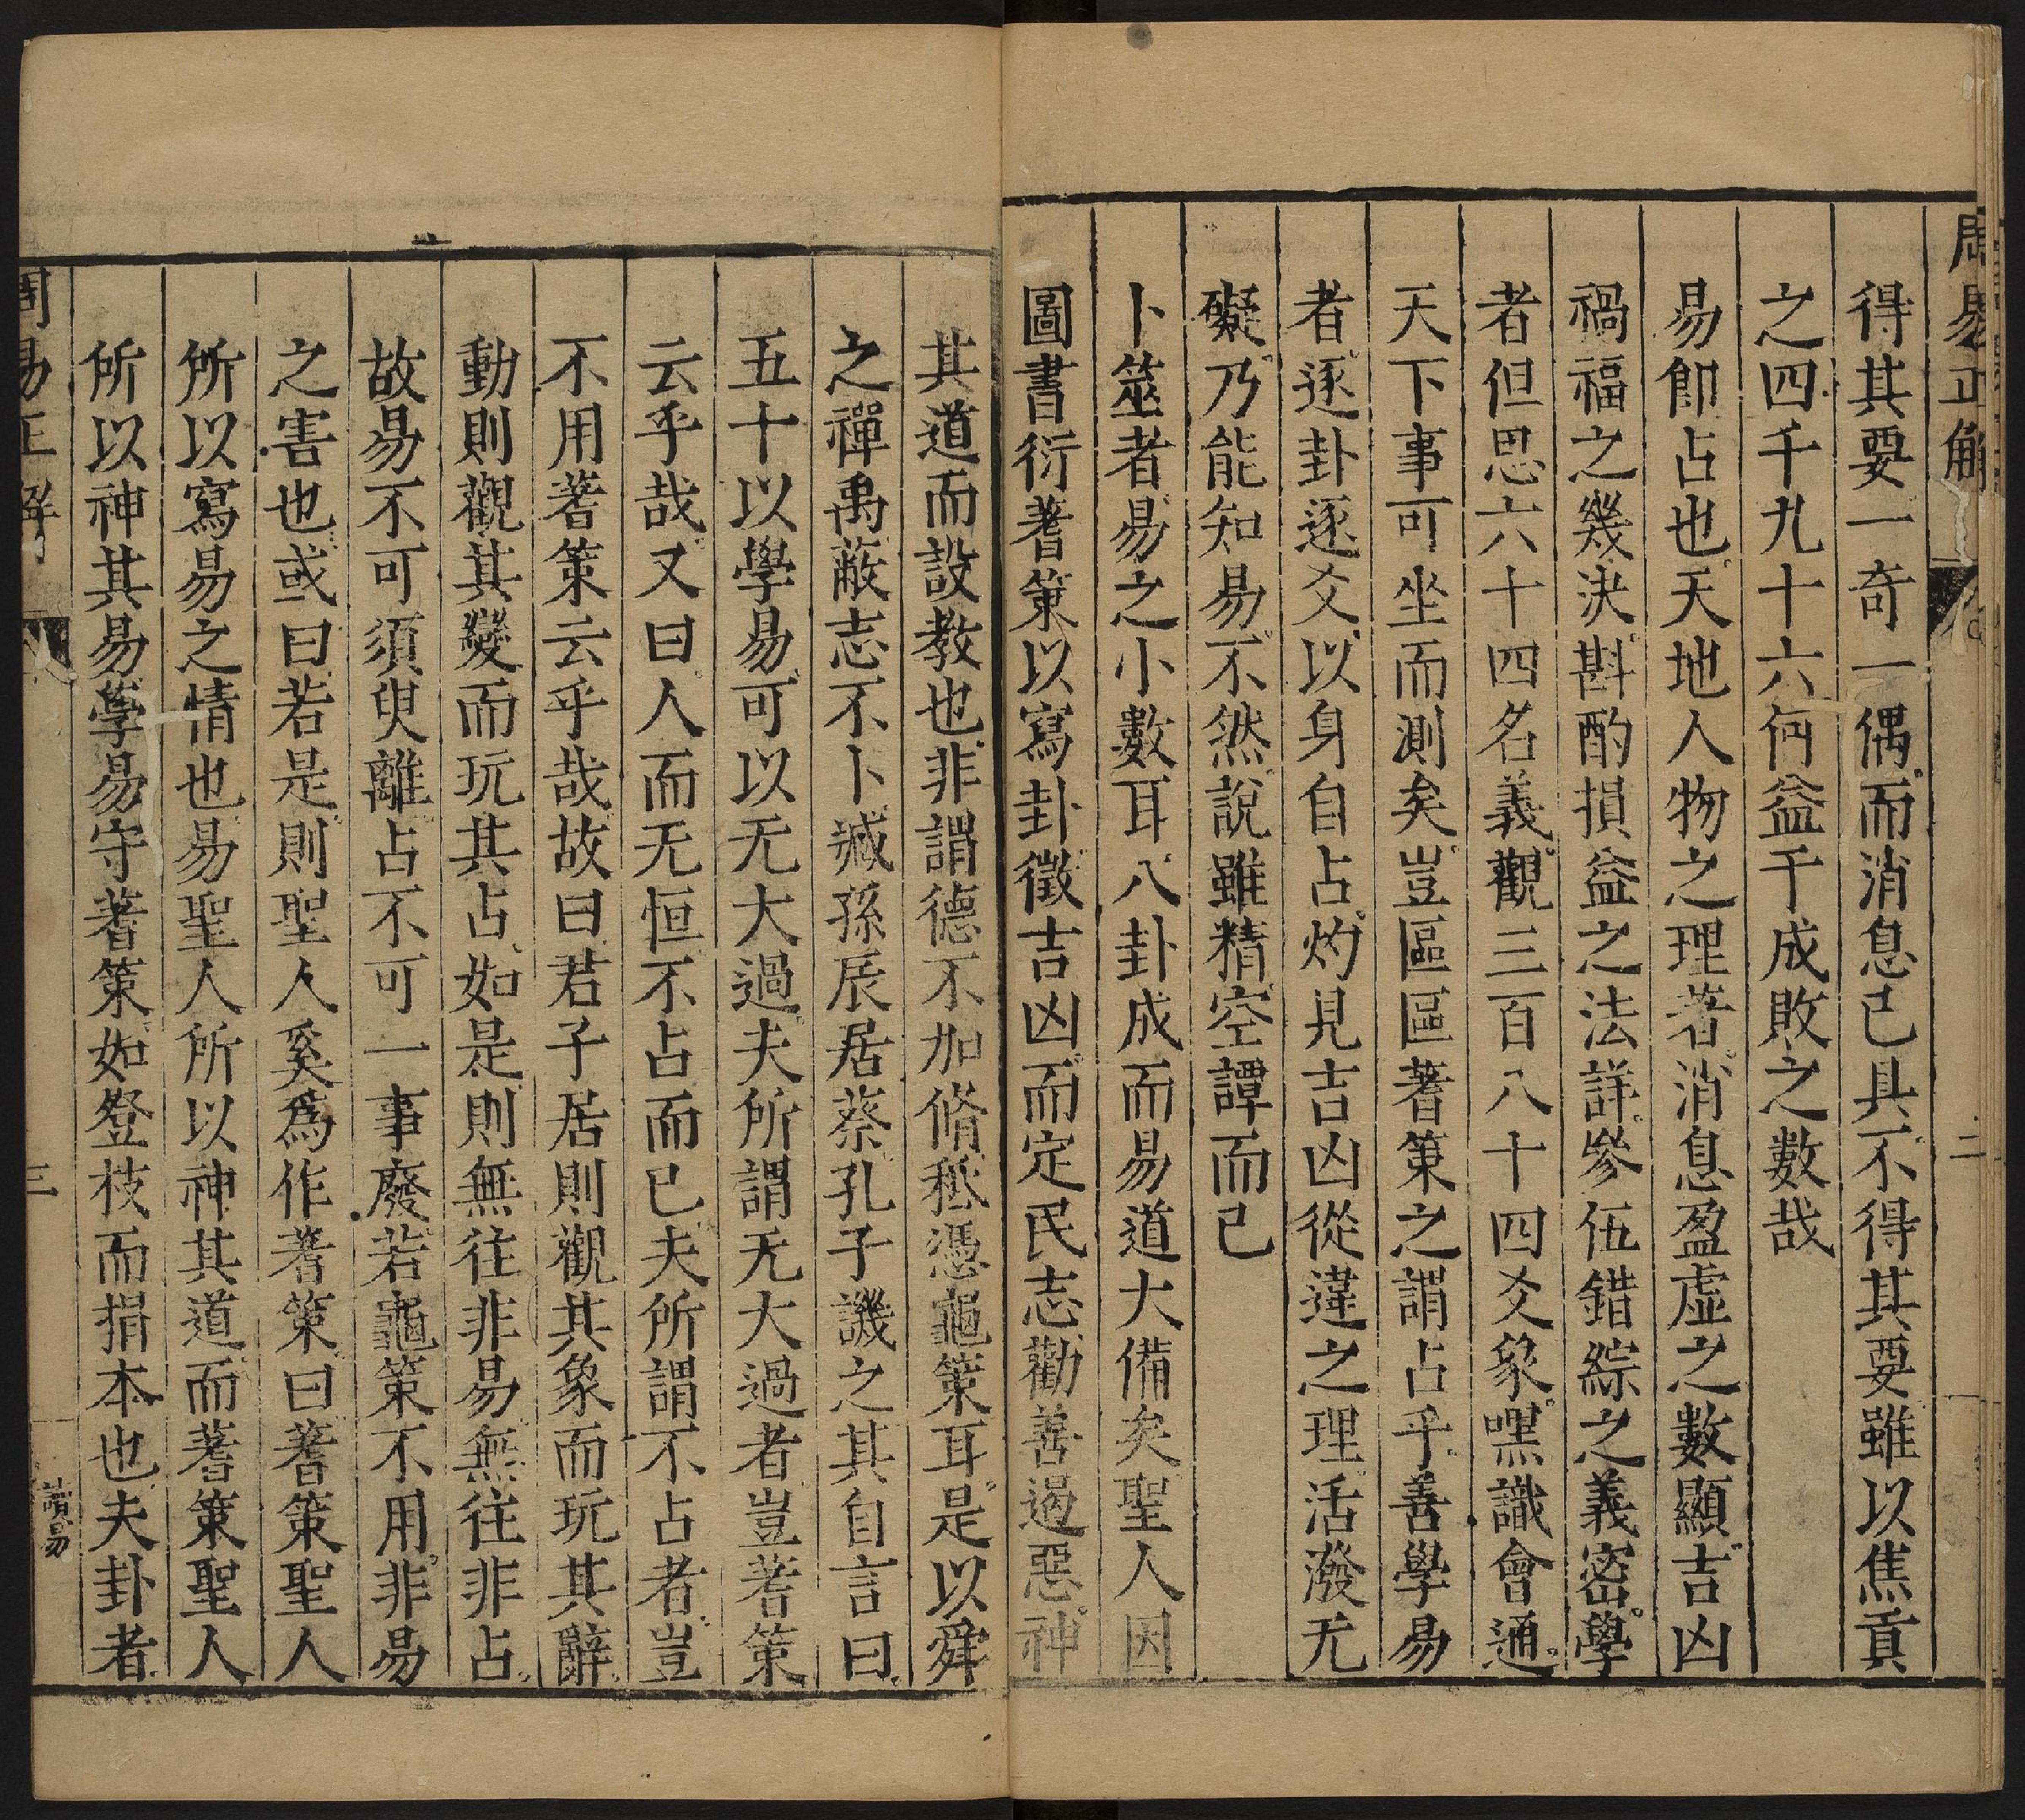 周易正解
二
得其要一奇一偶而消息已具不得其要雖以焦貢
之四千九十六何益于成敗之數哉
易卽占也天地人物之理著消息盈虛之數顯吉凶
禍福之幾決斟酌損益之法詳參伍錯綜之義密學
者但思六十四名義觀三百八十四爻象嘿識會通
天下事可坐而測矣豈區區蓍策之謂占乎善學易
者逐卦逐爻以身自占灼見吉凶從違之理活潑无
礙乃能知易不然說雖精空譚而已
卜筮者易之小數耳八卦成而易道大備矣聖人因
圖書衍蓍策以寫卦徵吉凶而定民志勸善遏惡神
其道而設教也非謂德不加脩秪憑龜策耳是以舜
之禪禹蔽志不卜臧孫辰居蔡孔子譏之其自言曰
五十以學易可以无大過夫所謂无大過者豈蓍策
云乎哉又曰人而无恒不占而已夫所謂不占者豈
不用蓍策云乎哉故曰君子居則觀其象而玩其辭
動則觀其變而玩其占如是則無往非易無往非占
故易不可須臾離占不可一事廢若龜策不用非易
之害也或曰若是則聖人奚爲作蓍策曰蓍策聖人
所以寫易之情也易聖人所以神其道而蓍策聖人
所以神其易學易守蓍策如登枝而捐本也夫卦者
周易正解
三
讀易